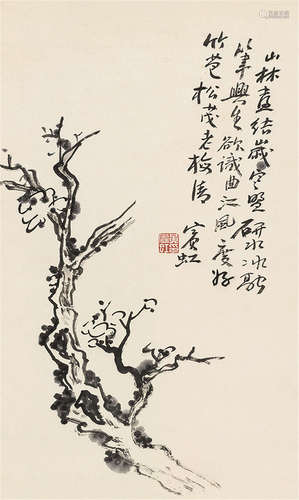 山林盍结岁寒盟研水冰融
笔兴生欲识曲江风度好
竹苞松茂老梅清
宾虹